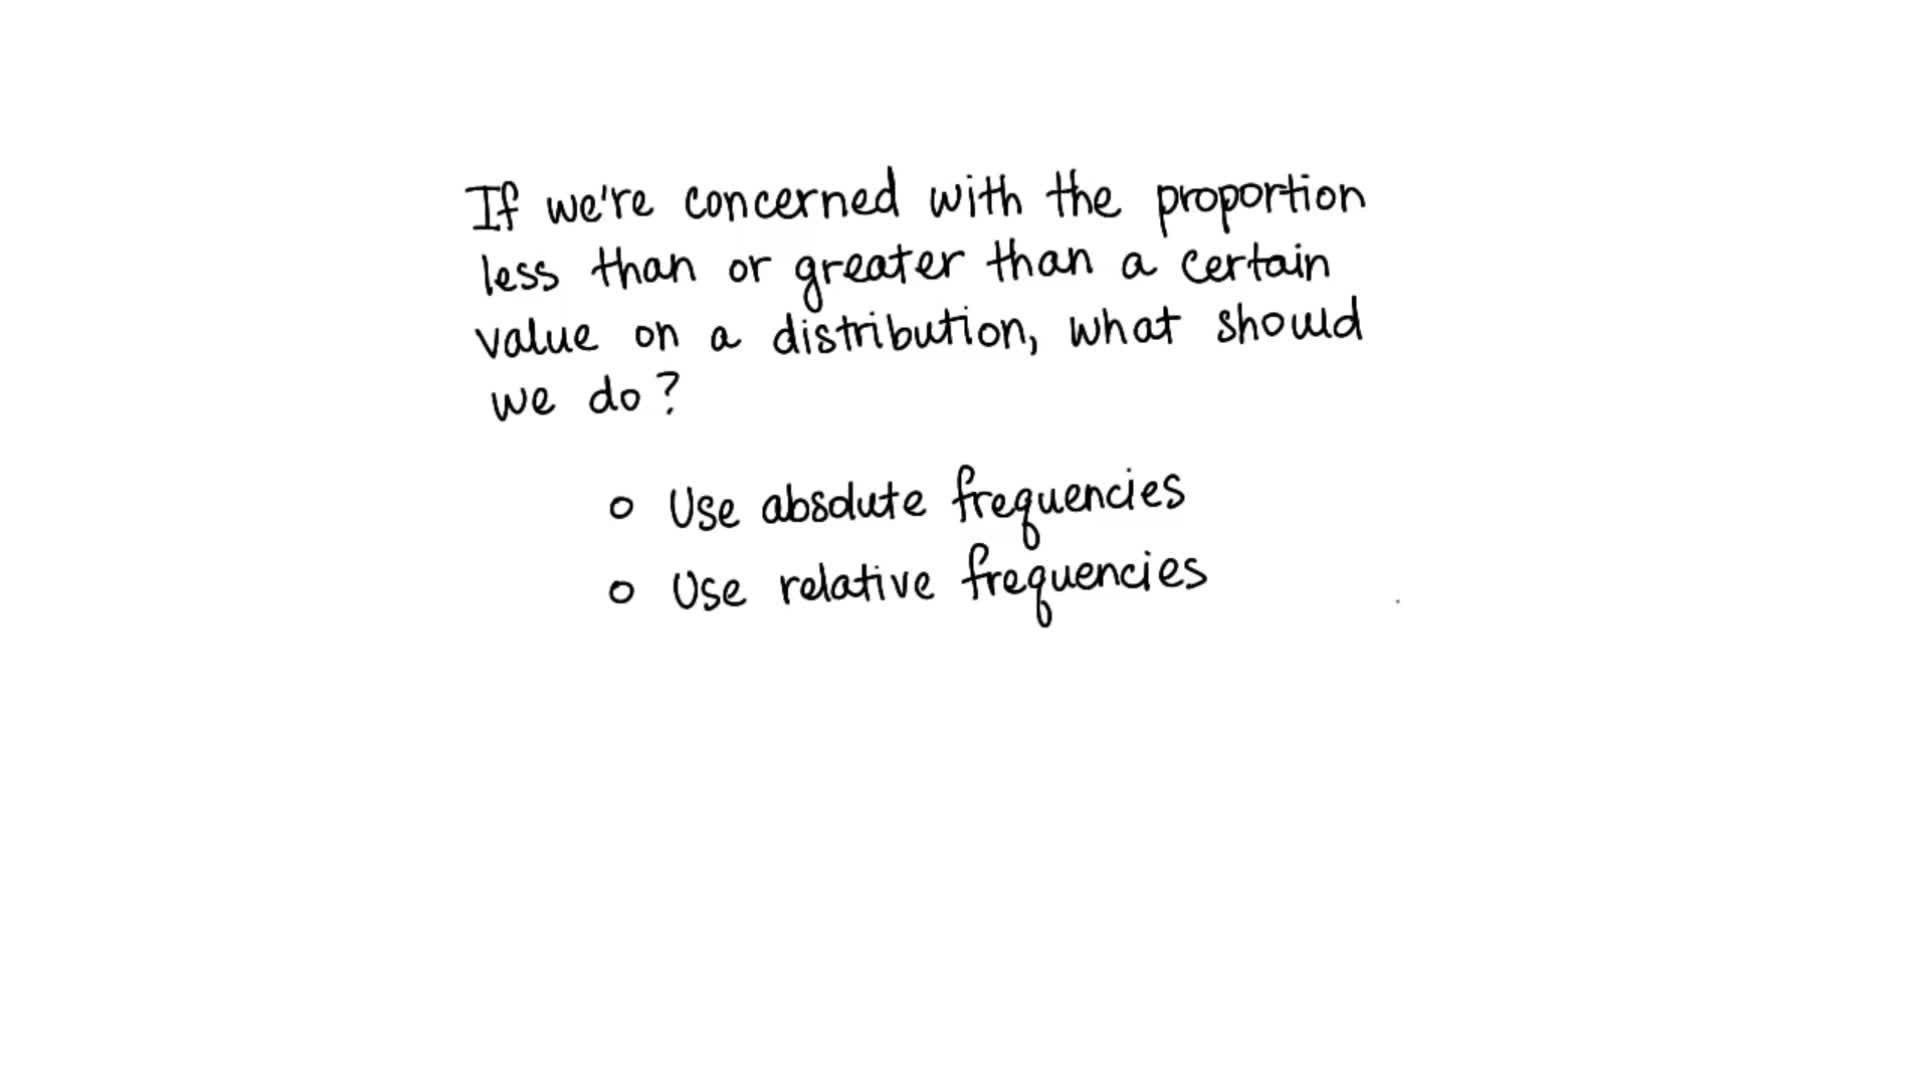 If we're concerned with the proportion
less than or greater than a certain
value on a distribution, what should
we do?
o Use absolute frequencies
o Use relative frequencies